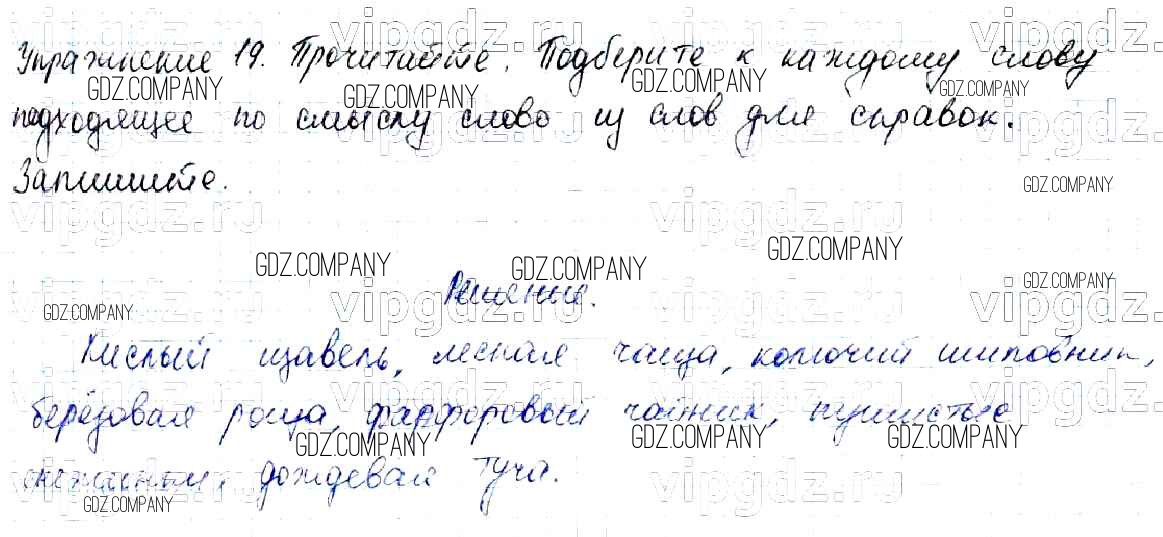 Упражнение 19. Прочитайте. Подберите к каждому слову
подходящее по смыслу слово из слов для справок.
Запишите.
Решение.
Кислый щавель, лесная чаща, колючий шиповник,
берёзовая роща, фарфоровый чайник, пушистые
снежинки, дождевая туча.
vipgdz.ru
GDZ.COMPANY